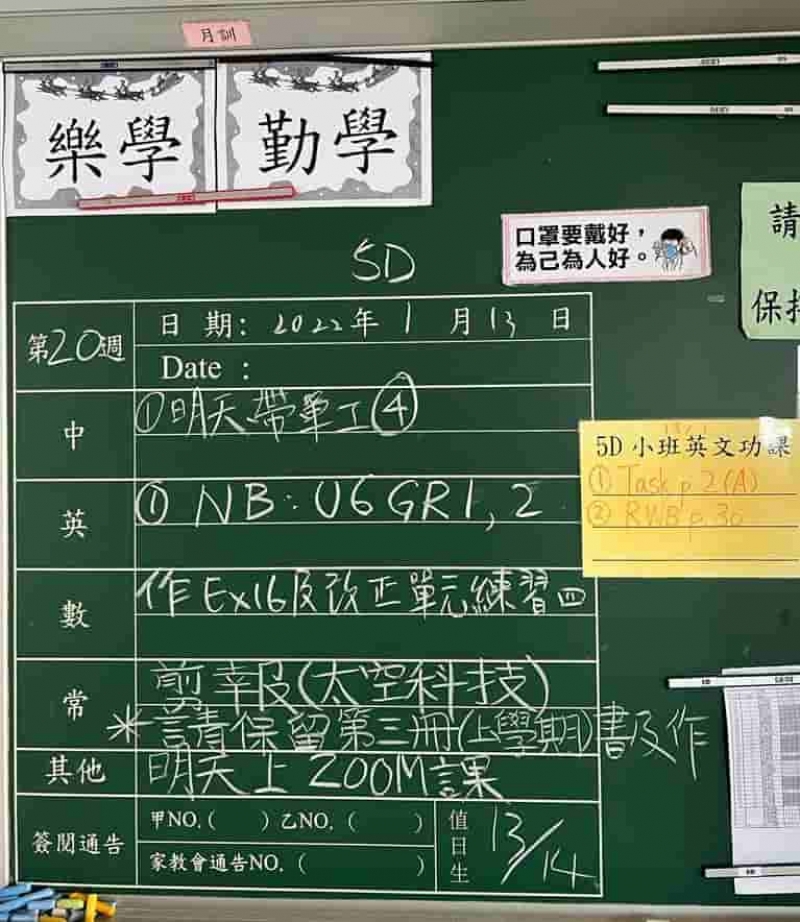 月訓
樂學
勤學
口罩要戴好，
為己為人好。
請
5D
第20週
日 期: 2022年 1 月 13 日
Date :
中
①明天帶單工④
英
① NB: U6 GR1, 2
數
作Ex16及改正單元練習四
常
剪報(太空科技)
*請保留第三冊(上學期)書及作
其他
明天上ZOOM課
簽閱通告
甲NO.( ) 乙NO. ( )
家教會通告NO. ( )
值日生
13/14
5D 小班英文功課
① Task p.2(A)
② RWB p.30